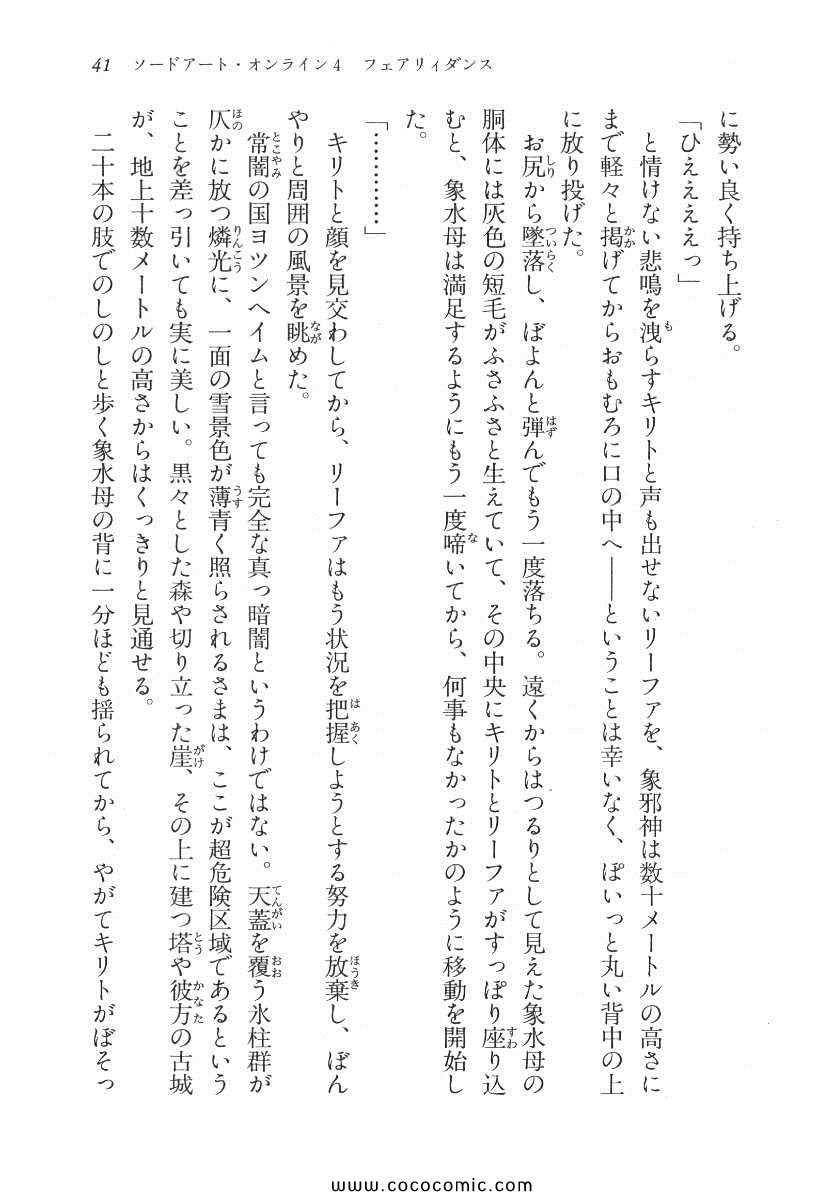 41 ソードアート・オンライン4 フェアリィダンス
に勢い良く持ち上げる。
「ひええええっ」
と情けない悲鳴を洩らすキリトと声も出せないリーファを、象邪神は数十メートルの高さに
まで軽々と掲げてからおもむろに口の中へ――ということは幸いなく、ぽいっと丸い背中の上
に放り投げた。
お尻から墜落し、ぼよんと弾んでもう一度落ちる。遠くからはつるりとして見えた象水母の
胴体には灰色の短毛がふさふさと生えていて、その中央にキリトとリーファがすっぽり座り込
むと、象水母は満足するようにもう一度啼いてから、何事もなかったかのように移動を開始し
た。
「…………」
キリトと顔を見交わしてから、リーファはもう状況を把握しようとする努力を放棄し、ぼん
やりと周囲の風景を眺めた。
常闇の国ヨツンヘイムと言っても完全な真っ暗闇というわけではない。天蓋を覆う氷柱群が
仄かに放つ燐光に、一面の雪景色が薄青く照らされるさまは、ここが超危険区域であるという
ことを差っ引いても実に美しい。黒々とした森や切り立った崖、その上に建つ塔や彼方の古城
が、地上十数メートルの高さからはくっきりと見通せる。
二十本の肢でのしのしと歩く象水母の背に一分ほども揺られてから、やがてキリトがぼそっ
www.cococomic.com